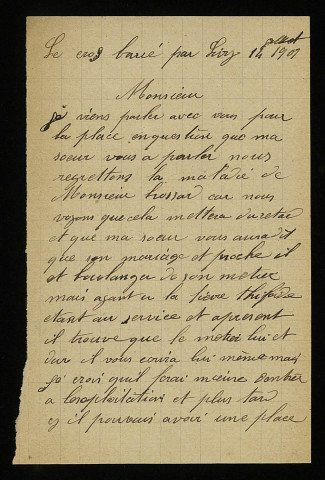 Le cros barié par Livry 14 1901
Monsieur
je viens parler avec vous pour
la place enquestion que ma
soeur vous a parler nous
regrettons la maladi de
Monsieur brossard car nous
voyons que cela mettera du retar
et que ma soeur vous aura dit
que son mariage et proche il
et boulanger de son metier
mais ayant u la fievre thifoïde
etant au service et apresent
il trouve que le metier lui et
dur il vous ecrira lui même mais
je crois quil ferai mieux dentrer
a lexploitation et plus tard
il pouvais avoir une place